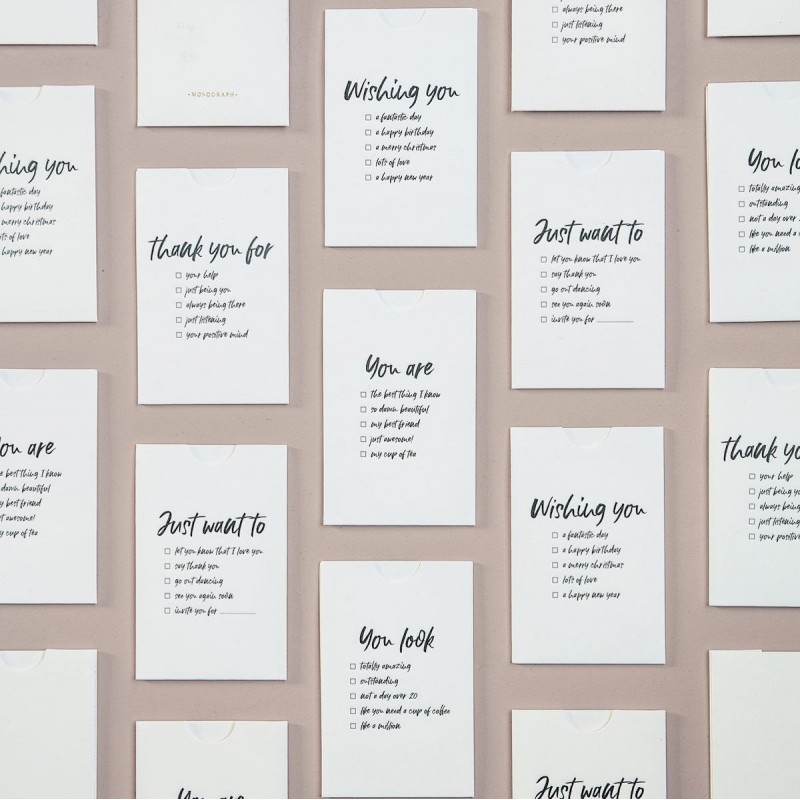 hing you
fantastic day
happy birthday
merry christmas
ts of love
happy new year
ou are
e best thing I know
damn beautiful
y best friend
st awesome!
y cup of tea
•MONOGRAPH•
thank you for
your help
just being you
always being there
just listening
your positive mind
Just want to
let you know that I love you
say thank you
go out dancing
see you again soon
invite you for
You are
Wishing you
a fantastic day
a happy birthday
a merry christmas
lots of love
a happy new year
You are
the best thing I know
so damn beautiful
my best friend
just awesome!
my cup of tea
You look
totally amazing
outstanding
not a day over 20
like you need a cup of coffee
like a million
always being there
just listening
your positive mind
Just want to
let you know that I love you
say thank you
go out dancing
see you again soon
invite you for
Wishing you
a fantastic day
a happy birthday
a merry christmas
lots of love
a happy new year
Just want to
You lo
totally amazing
outstanding
not a day over
like you need a
like a million
Thank yo
your help
just being yo
always being
just listening
your positive